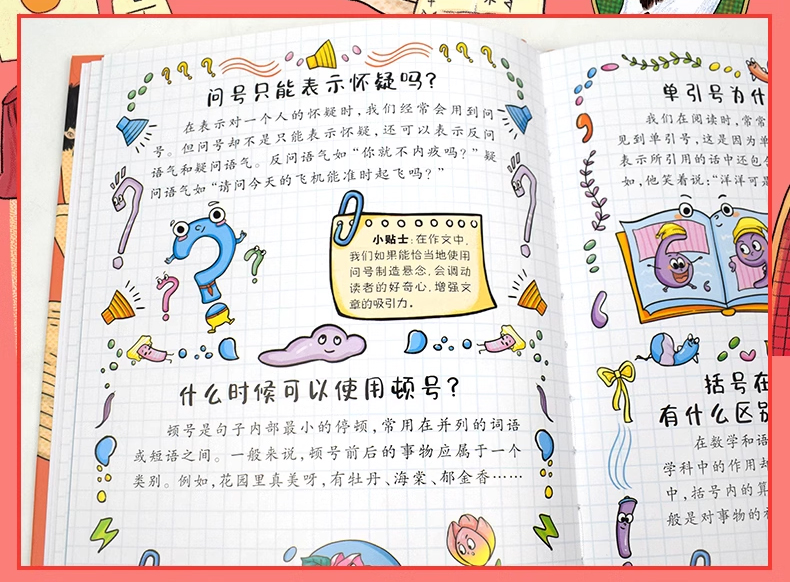 问号只能表示怀疑吗？
在表示对一个人的怀疑时，我们经常会用到问
号。但问号却不是只能表示怀疑，还可以表示反问
语气和疑问语气。反问语气如“你就不内疚吗？”疑
问语气如“请问今天的飞机能准时起飞吗？”
小贴士：在作文中，
我们如果能恰当地使用
问号制造悬念，会调动
读者的好奇心，增强文
章的吸引力。
什么时候可以使用顿号？
顿号是句子内部最小的停顿，常用在并列的词语
或短语之间。一般来说，顿号前后的事物应属于一个
类别。例如，花园里真美呀，有牡丹、海棠、郁金香……
单引号为什
我们在阅读时，常常
见到单引号，这是因为单
表示所引用的话中还包
如，他笑着说：“洋洋可是
括号在
有什么区别
在数学和语
学科中的作用却
中，括号内的算
般是对事物的